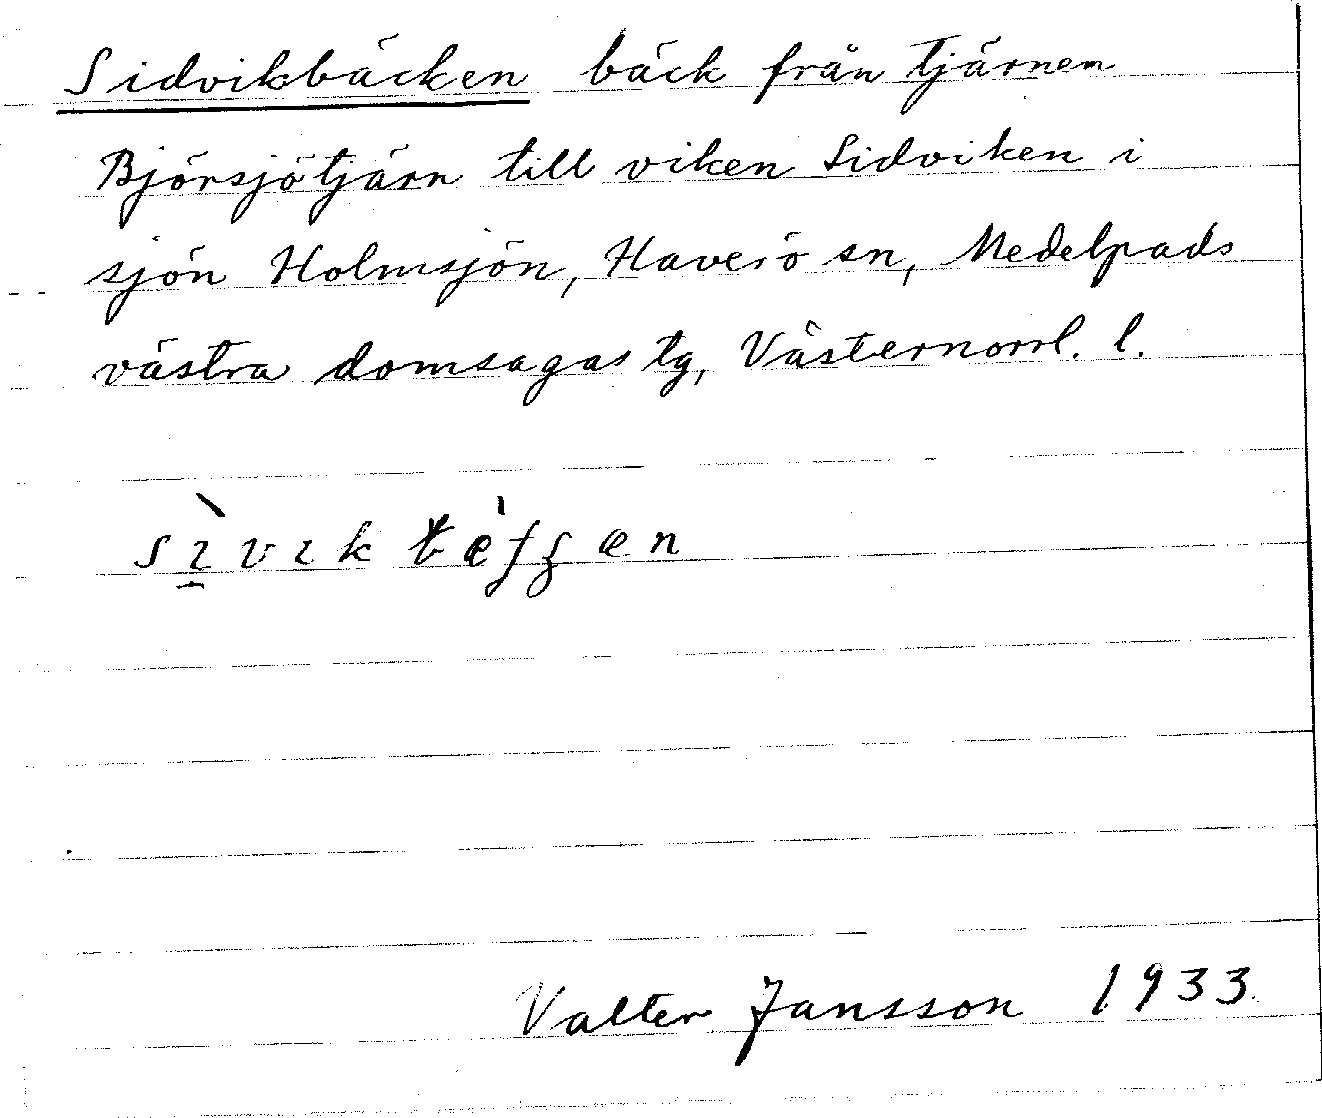 Sidvikbäcken bäck från tjärnen
Björsjötjärn till viken Sidviken i
sjön Holmsjön, Haverö sn, Medelpads
västra domsagas tg, Västernorrl. l.
Valter Jansson 1933.